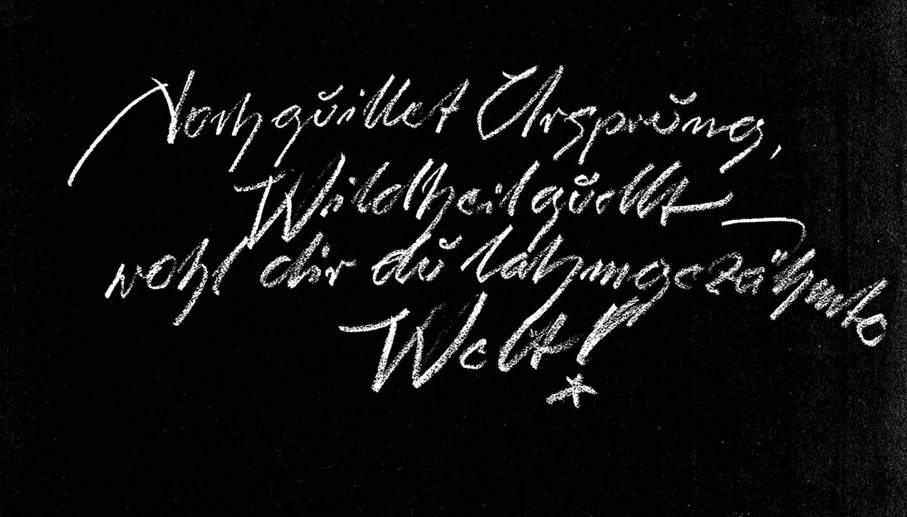 Noch quillet Ursprung,
Wildheit quillt
wohl dir du lahmgezähmte
Welt!